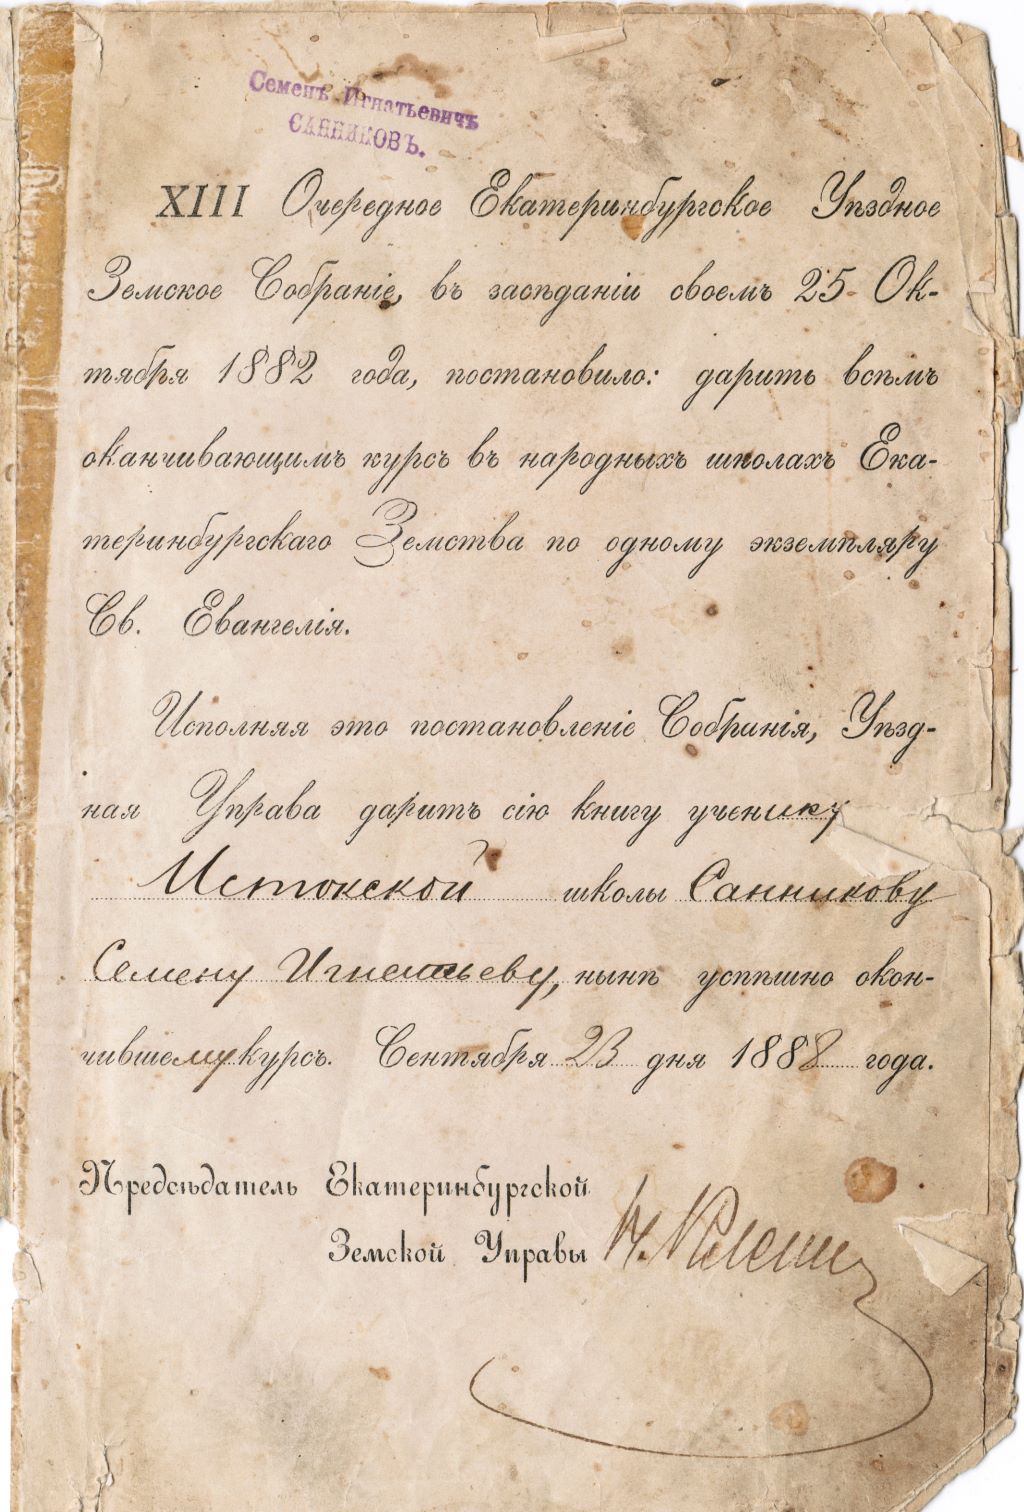 Семенъ Игнатьевичъ
САННИКОВЪ.
XIII Очередное Екатеринбургское Уѣздное
Земское Собраніе, въ засѣданіи своемъ 25 Ок-
тября 1882 года, постановило: дарить всѣмъ
оканчивающимъ курсъ въ народныхъ школахъ Ека-
теринбургскаго Земства по одному экземпляру
Св. Евангелія.
Исполняя это постановленіе Собранія, Уѣзд-
ная Управа даритъ сію книгу ученику
Истокской школы Санникову
Семену Игнатьеву, нынѣ успѣшно окон-
чившему курсъ. Сентября 23 дня 1888 года.
Предсѣдатель Екатеринбургской
Земской Управы